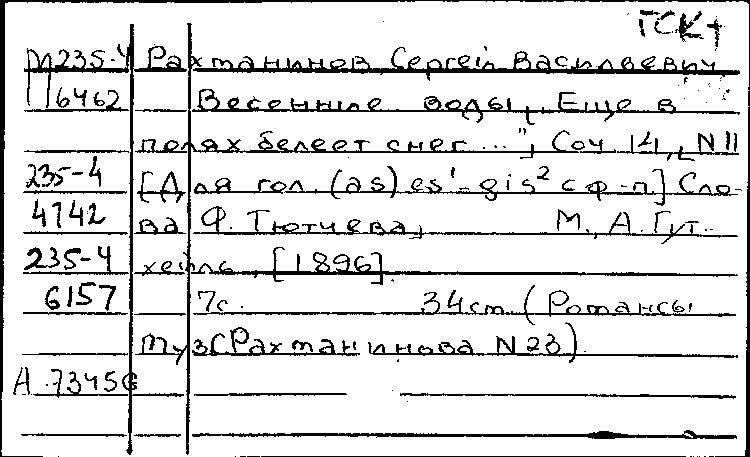 ГСК+
М235-4 Рахманинов, Сергей Васильевич
6462 Весенние воды, „Еще в
полях белеет снег...", Соч 14, N11
235-4 [Для гол. (as) es¹-gis² с ф-п.] Сло-
4742 ва Ф. Тютчева, М., А. Гут-
235-4 хейль, [1896].
6157 7с. 34см. (Романсы
муз. С Рахманинова N23)
А.7345